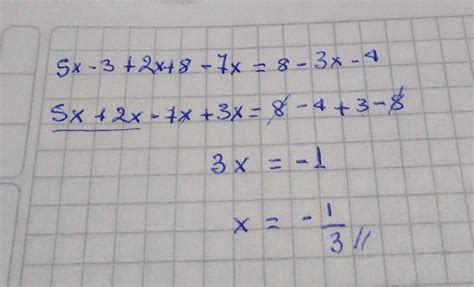 5x - 3 + 2x + 8 - 7x = 8 - 3x - 4
5x + 2x - 7x + 3x = 8 - 4 + 3 - 8
3x = -1
x = - 1/3 //